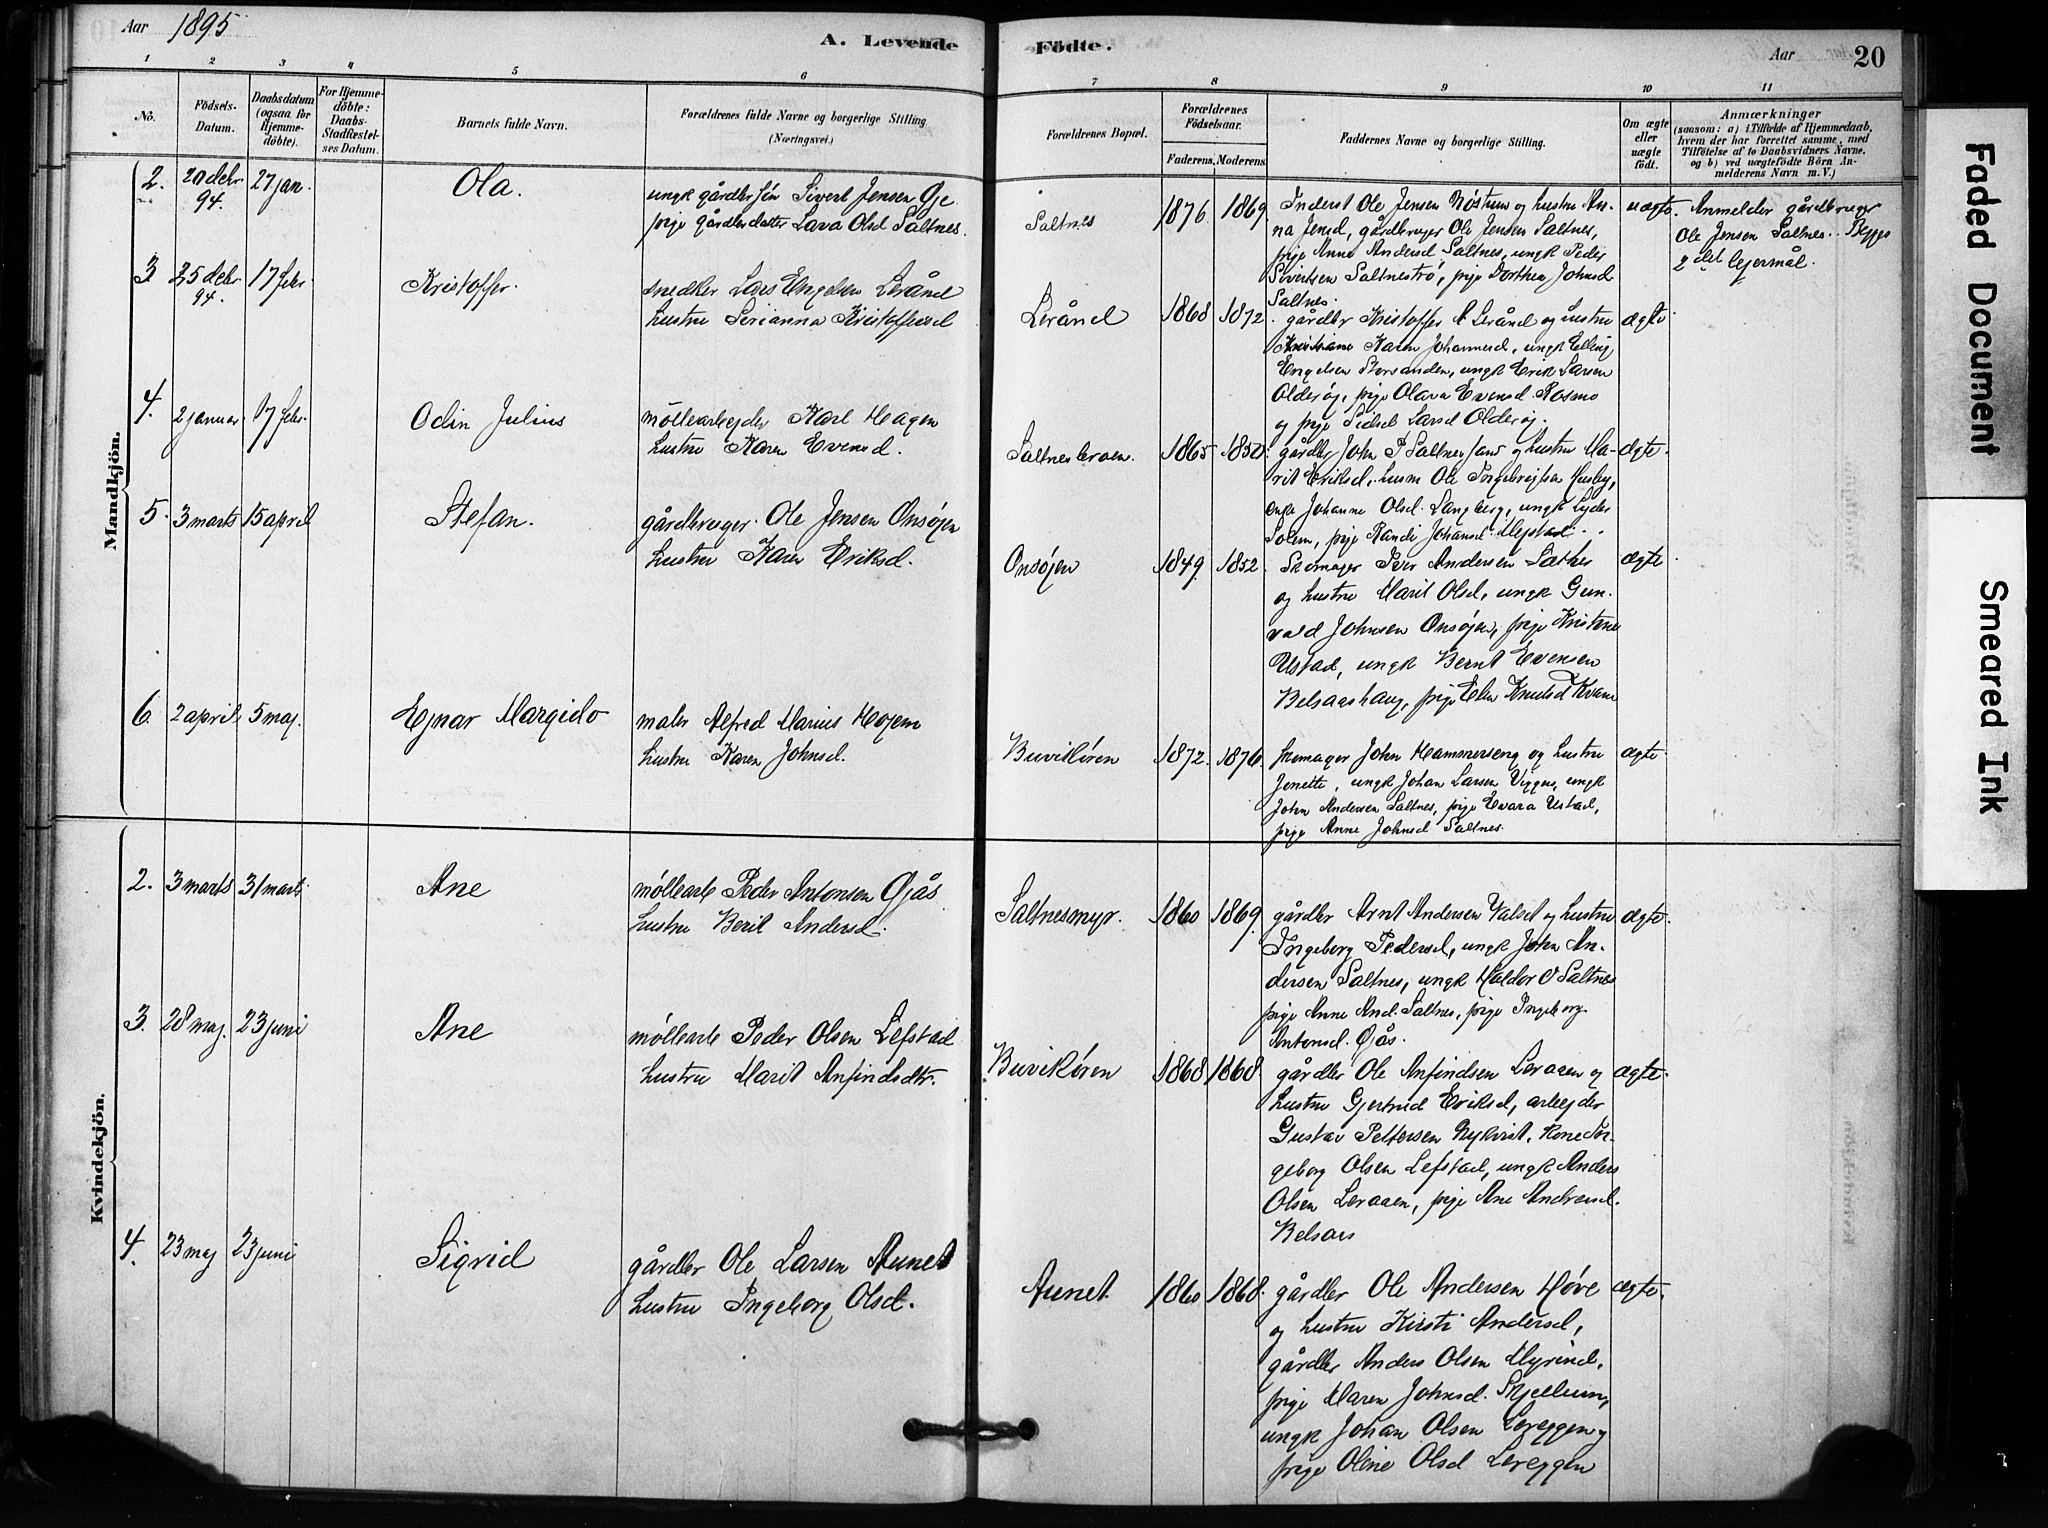 Aar 1895
A. Levende Födte.
Aar 20
1 2 3 4 5 6 7 8 9 10 11
No.
Födsels-Datum.
Daabsdatum (ogsaa for Hjemme-döbte).
For Hjemme-döbte: Daabs-Stadfæstel-ses Datum.
Barnets fulde Navn.
Forældrenes fulde Navne og borgerlige Stilling (Næringsvei).
Forældrenes Bopæl.
Forældrenes Födselsaar.
Faderens. Moderens.
Faddernes Navne og borgerlige Stilling.
Om ægte eller uægte födt.
Anmærkninger
(saasom: a) i Tilfælde af Hjemmedaab, hvem der har forrettet samme, med Tilföielse af to Daabsvidners Navne. og b) ved uægtefödte Börn An-melderens Navn m. V.)
Mandkjön.
2. 20 debr 94. 27 jan. Ola.
ungk gårdbr sön Sivert Jensen Gje
pige gårdbr datter Lava Olsd Saltnes.
Saltnes 1876. 1869.
Inderst Ole Jensen Röstum og hustru An-
na Jensd, gårdbruger Ole Jensen Saltnes,
pige Anne Andersd Saltnes, ungk Peder
Sivertsen Saltneströ, pige Dorthea Johnsd
Saltnes.
uægte.
Anmelder gårdbruger
Ole Jensen Saltnes. Begges
2det lejermål.
3. 25 debr 94. 17 febr. Kristoffer.
snedker Lars Engelsen Leränd
hustru Serianna Kristoffersd
Leränd 1868 1872.
gårdbr Kristoffer A Leränd og hustru
Karen Johannesd, ungk Elling
Engelsen Storsanden, ungk Erik Larsen
Olderøy, pige Olava Evensd Rosmo
og pige Sidsel Larsd Olderøy.
ægte
4. 2 januar 17 febr. Odin Julius
möllearbejder Karl Hagen
hustru Karen Evensd.
1865 1850.
gårdbr John P Saltnessand og hustru Ma-
rit Eriksd, husm Ole Ingebrigtsen Husby,
enke Johanne Olsd. Langberg, ungk Lyder
Solem, pige Randi Johansd
ægte.
5. 3 marts 15 april Stefan.
gårdbruger Ole Jensen Onsøjen
hustru Karen Eriksd.
Onsøjen 1849. 1852.
Skomager Iver Andersen Sæther
og hustru Marit Olsd, ungk Gun-
vald Johnsen Onsøjen, pige Kristine
Ustad, ungk Bernt Evensen
Belsaashaug, pige Elen Knutsd Kvam
ægte
6. 2 april 5 maj. Ejnar Margido
maler Alfred Marius Hojem
hustru Karen Johnsd.
Buvikören 1872. 1876.
skomager John Hammerseng og hustru
Jonette, ungk Johan Larsen Viggen, ungk
John Andersen Saltnes, pige Evara Ustad,
pige Anne Johnsd Saltnes.
ægte.
Kvindekjön.
2. 3 marts 31 marts Ane
möllearb Peder Antonsen Gjås
hustru Berit Andersd.
Saltnesmyr. 1860 1869.
gårdbr Arnt Andersen Valset og hustru
Ingeborg Pedersd, ungk John An-
dersen Saltnes, ungk Haldor O Saltnes
pige Anne And. Saltnes, pige Ingeborg
Antonsd. Gjås.
ægte.
3. 28 maj. 23 juni Ane
möllearb Peder Olsen Lefstad
hustru Marit Anfindsdtr.
Buvikören 1868 1868.
gårdbr Ole Anfindsen Leraaen og
hustru Gjertrud Eriksd, arbejder
Gustav Pettersen Nykvist, kone In-
geborg Olsen Lefstad, ungk Anders
Olsen Leraaen, pige Ane Andreasd.
Belsaas
ægte.
4. 23 maj 23 juni Sigrid
gårdbr Ole Larsen Aunet
hustru Ingeborg Olsd.
Aunet. 1860 1868.
gårdbr Ole Andersen Höve
og hustru Kirsti Andersd,
gårdbr Anders Olsen Myrind.
pige Maren Johnsd. Skjellum,
ungk Johan Olsen Lereggen og
pige Oline Olsd Lereggen
ægte.
Faded Document
Smeared Ink